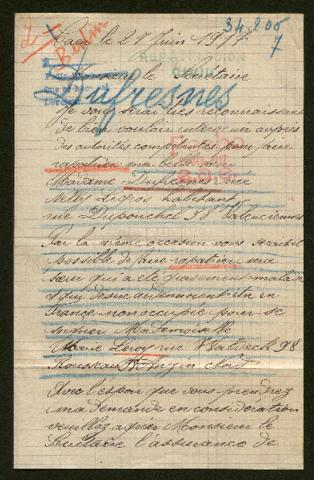 34.206
7
Caen le 27 Juin 1917
Monsieur le Secrétaire
Dufresnes
Je vous serai très reconnaissant
de bien vouloir intervenir auprès
des autorités compétentes pour faire
rapatrier ma belle
Madame Dufresnes née
Nelly Legros habitant
rue Duponchel 38 Valenciennes
Par la même occasion vous serait-il
possible de faire rapatrier ma
sœur qui a été gravement malade
et qui désire
France non occupée pour se
soigner Mademoiselle
Marie Leroy rue 98
Rousseau Anzin
Avec l'espoir que vous prendrez
ma demande en considération
veuillez agréer Monsieur le
Secrétaire l'assurance de